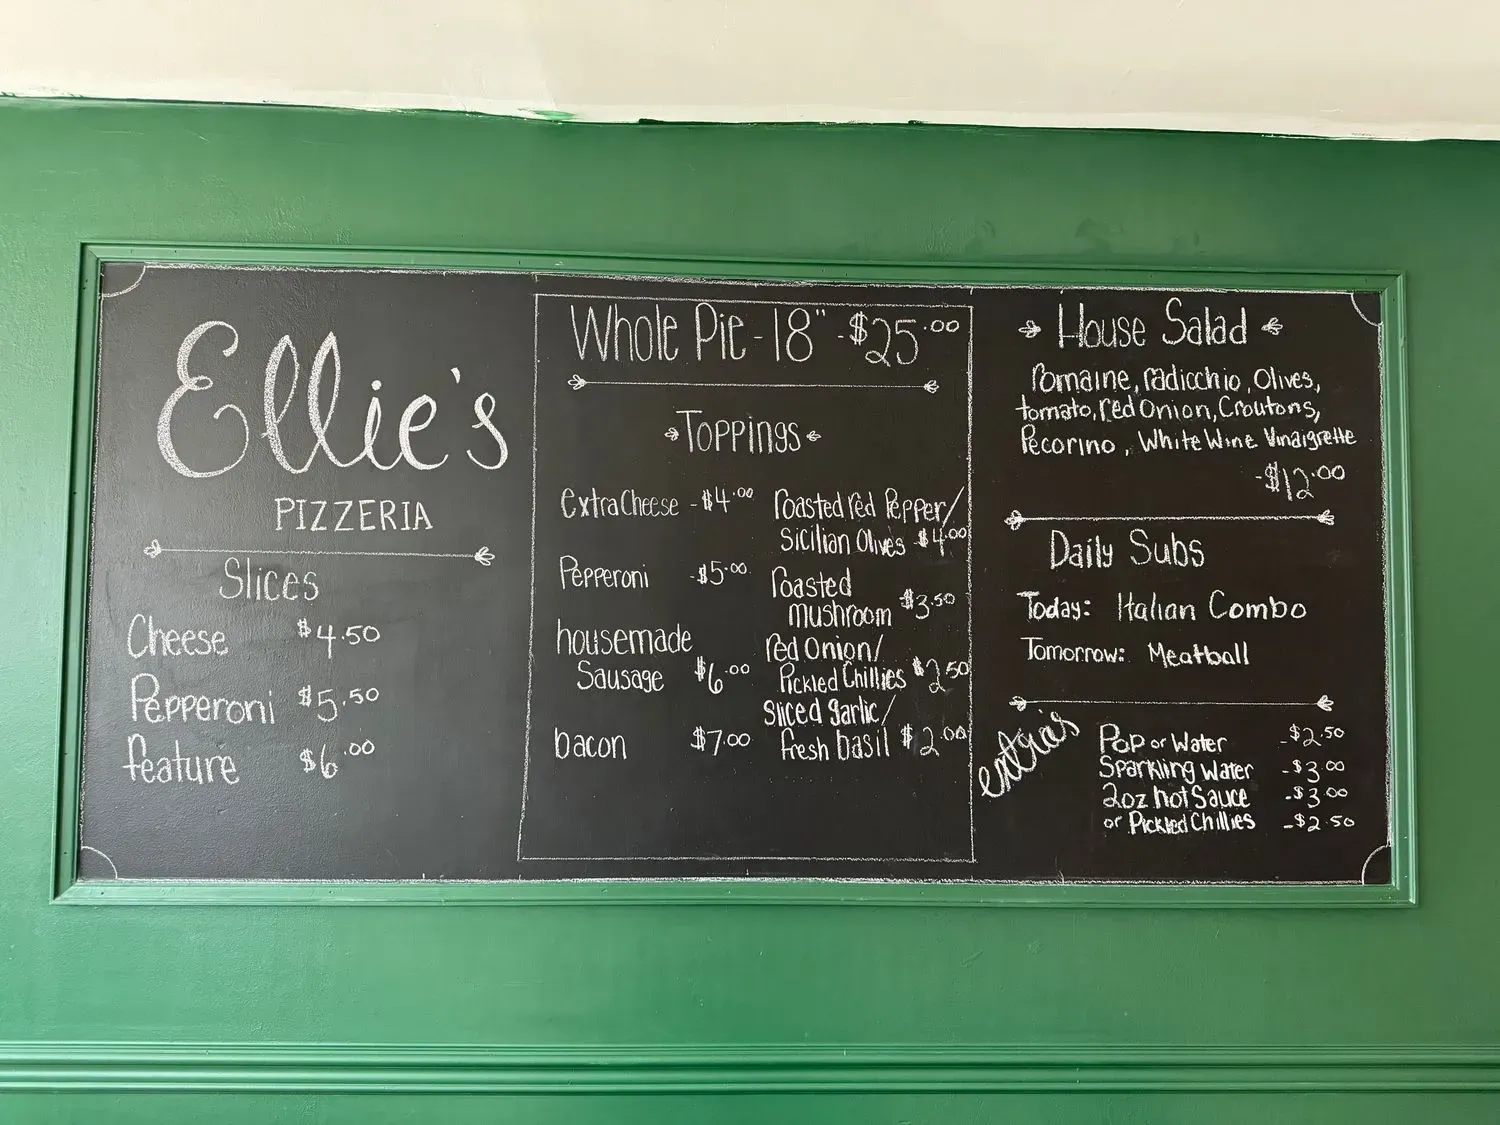 Ellie's
PIZZERIA
Slices
Cheese $4.50
Pepperoni $5.50
feature $6.00
Whole Pie - 18" - $25.00
Toppings
extra Cheese - $4.00
Pepperoni - $5.00
housemade
Sausage $6.00
bacon $7.00
roasted red Pepper/
Sicilian Olives $4.00
roasted
mushroom $3.50
red Onion/
Pickled Chillies $2.50
Sliced garlic/
fresh basil $2.00
House Salad
Romaine, radicchio, Olives,
tomato, red Onion, Croutons,
Pecorino, White Wine Vinaigrette
- $12.00
Daily Subs
Today: Italian Combo
Tomorrow: Meatball
extra's
Pop or Water - $2.50
Sparkling Water - $3.00
2oz hot Sauce - $3.00
or Pickled Chillies - $2.50